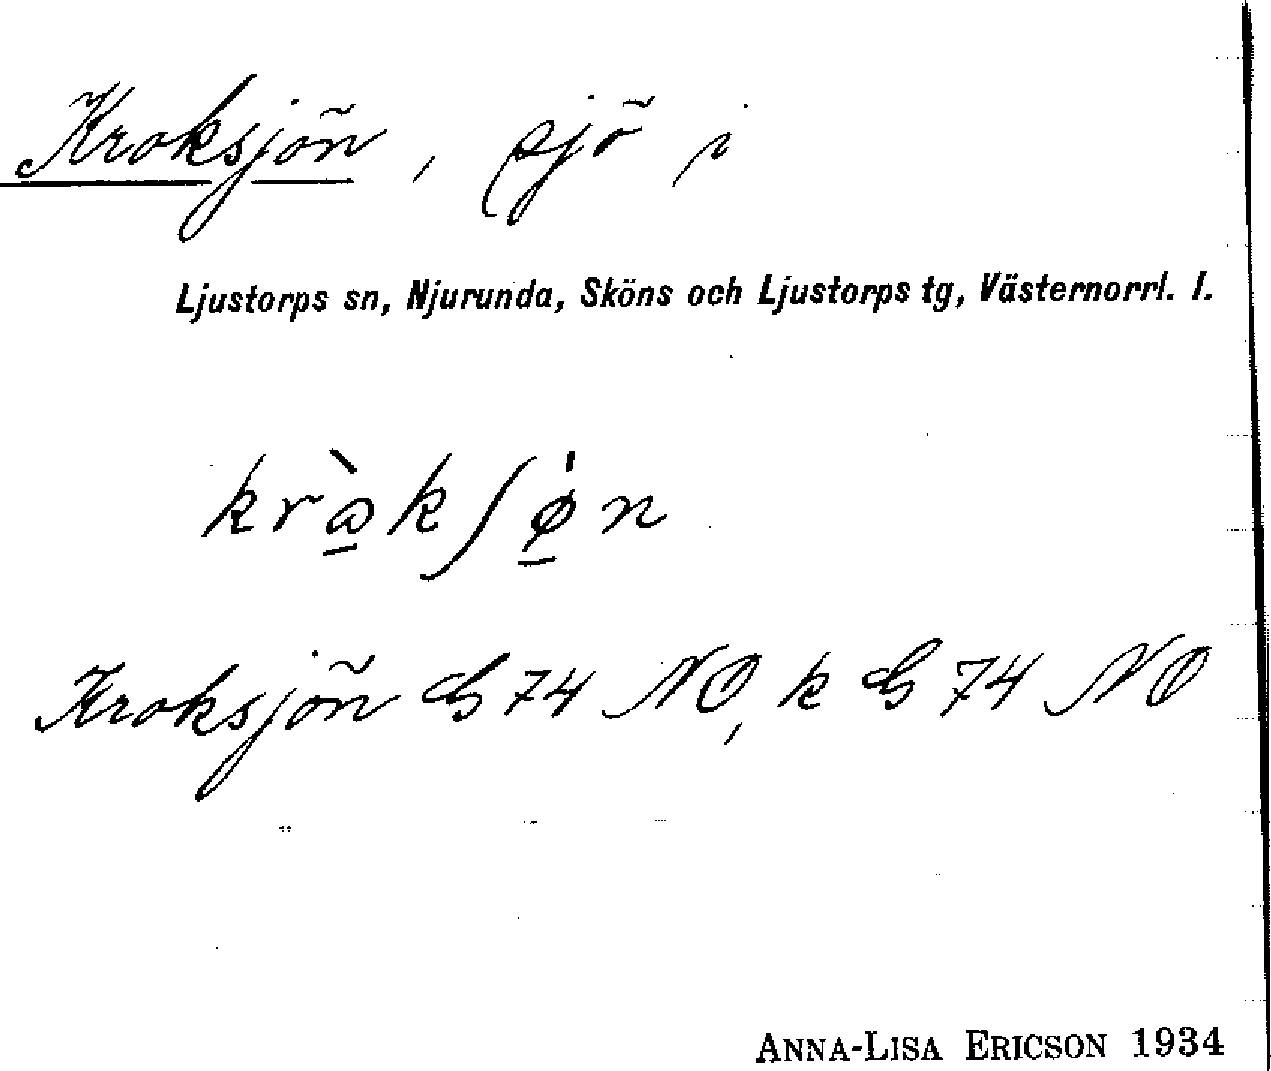 Kroksjön, sjö i
Ljustorps sn, Njurunda, Sköns och Ljustorps tg, Västernorrl. l.
krὼ̱kʃø̱̍n
Kroksjön G 74 NO, k G 74 NO
ANNA-LISA ERICSON 1934